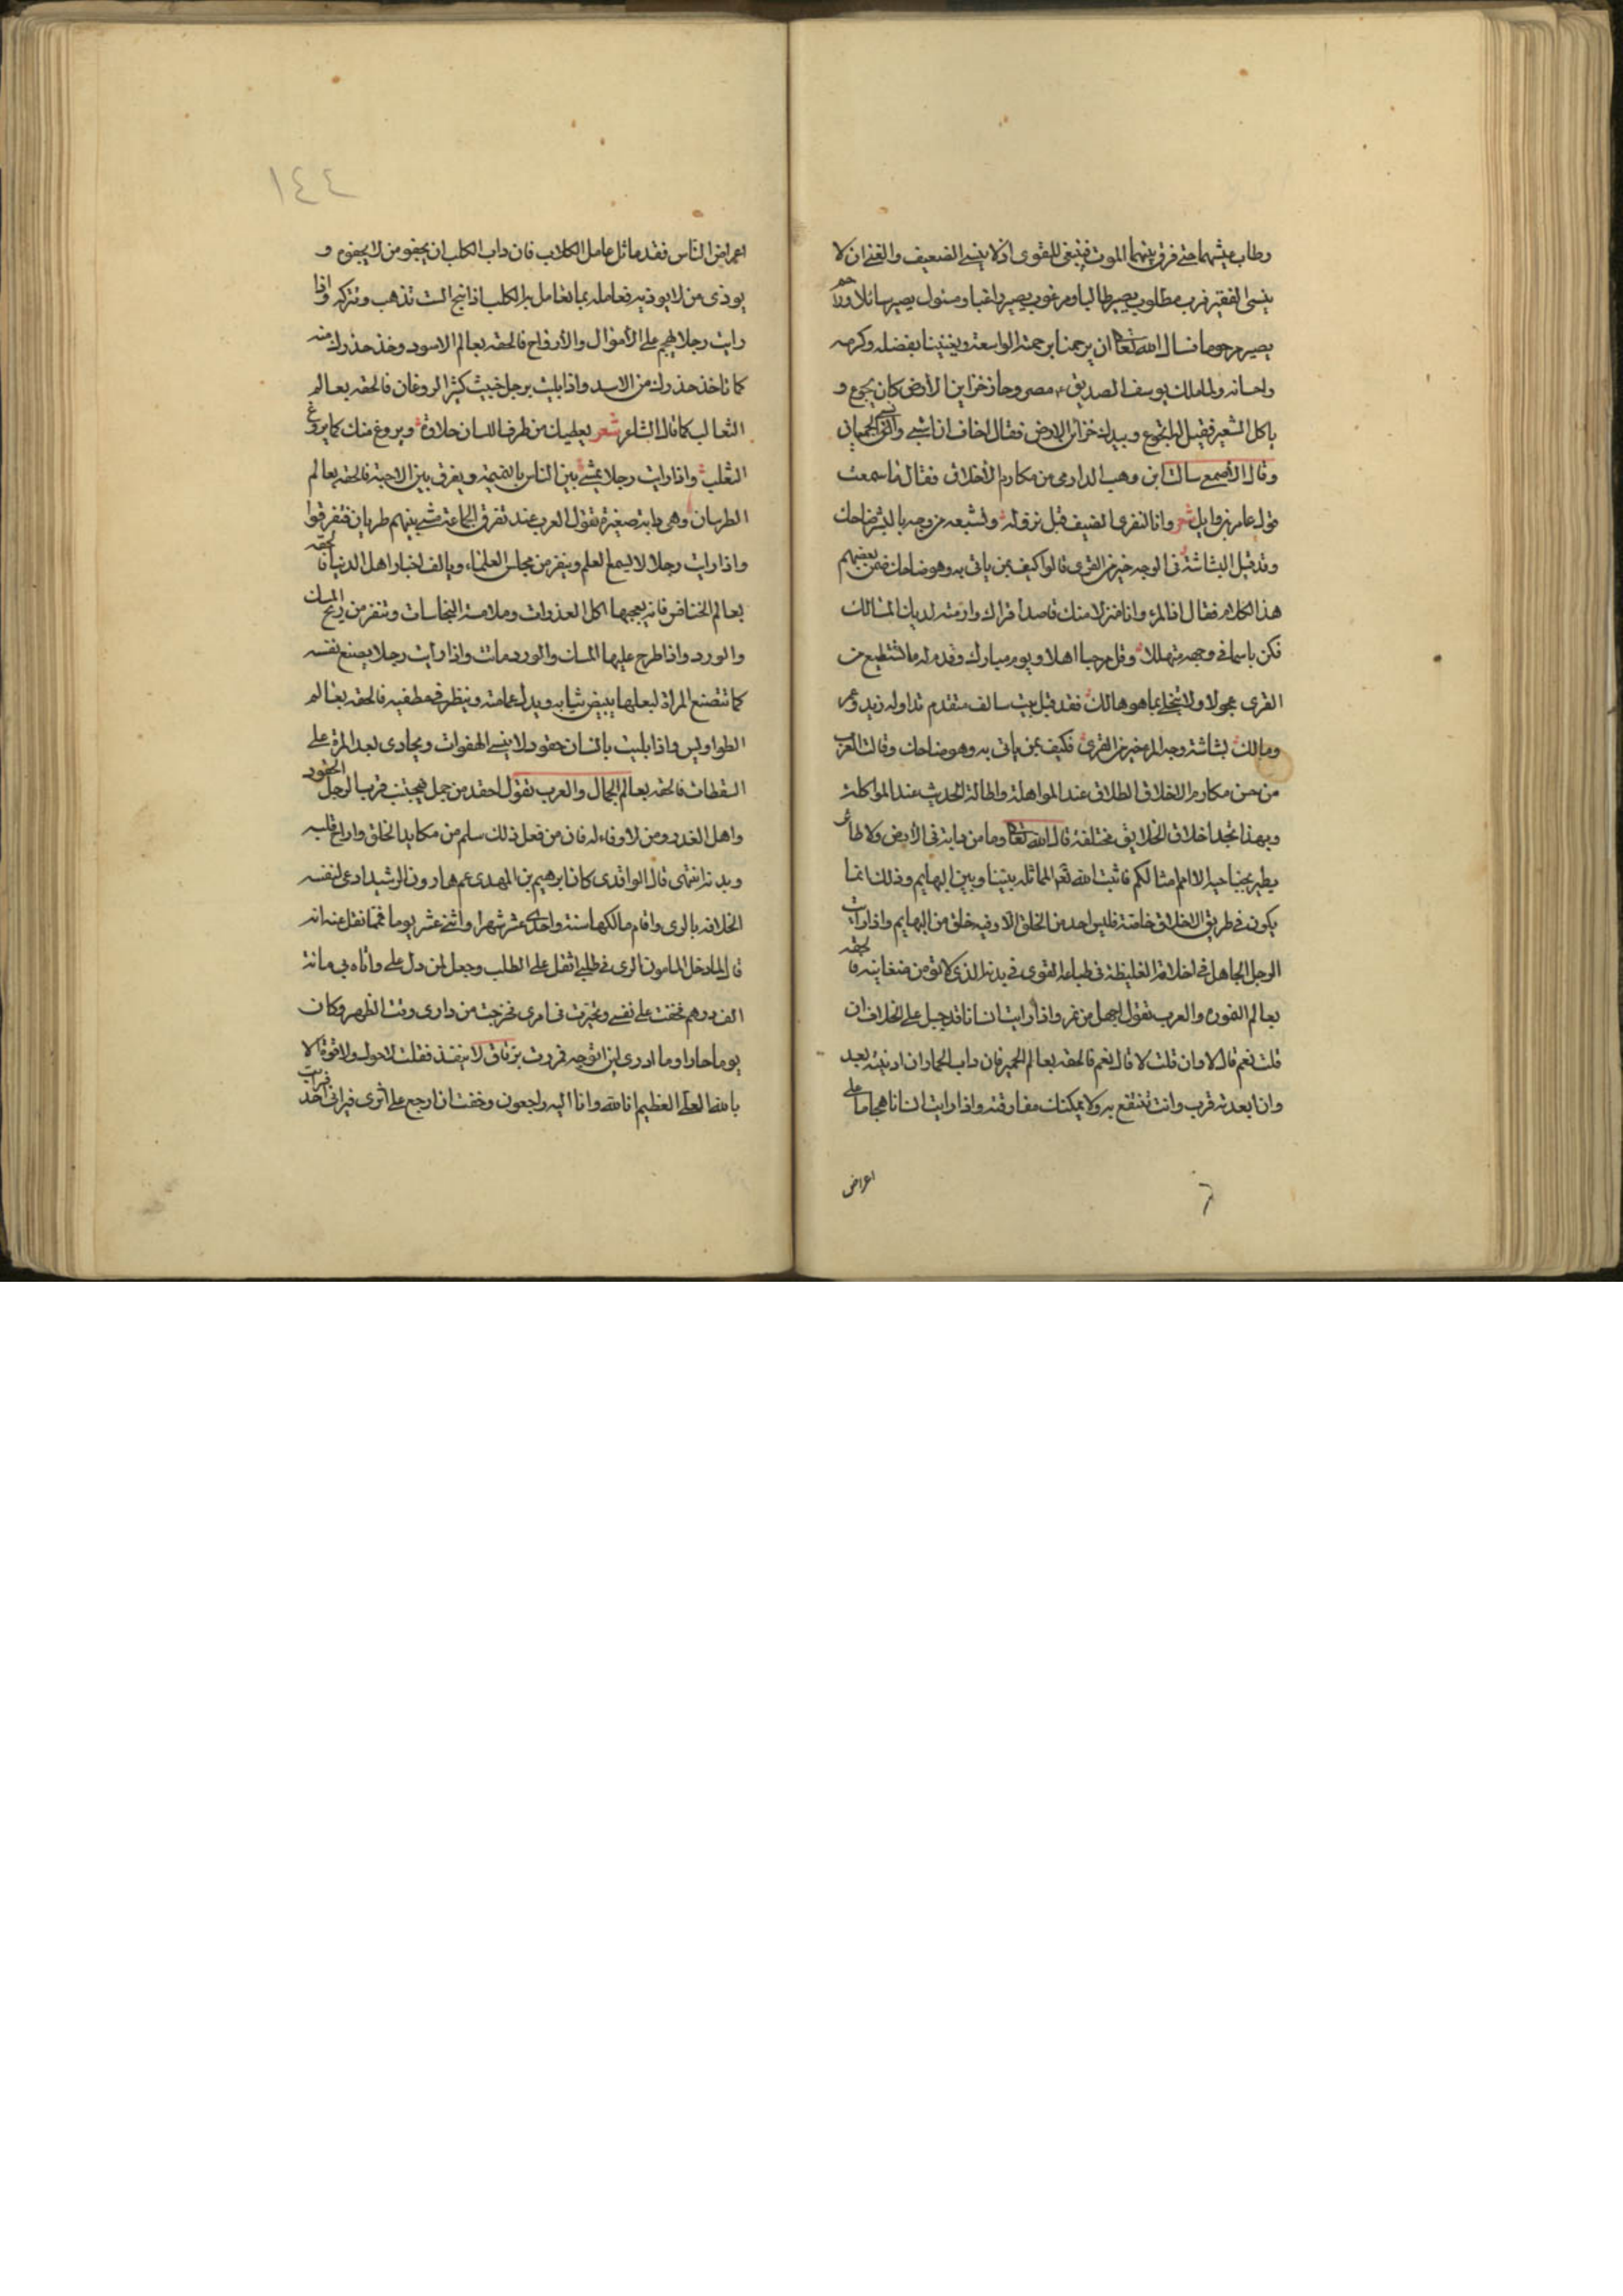 وطاب عيشهما حتى فرق بينهما الموت فينبغى للقوى ان لا ينسى الضعيف والغنى ان لا
ينسى الفقير فرب مطلوب يصير طالبا ومرغوب يصير راغبا ومسئول يصير سائلا وراحم
يصير مرحوما نسال الله تعالى ان يرحمنا برحمته الواسعة ويغنينا بفضله وكرمه
واحسانه ولما ملك يوسف الصديق مصر وحاز خزاين الارض كان يجوع و
ياكل الشعير فقيل له اتجوع وبيدك خزائن الارض فقال اخاف ان اشبع وانسى الجيعان
وقال الاصمعى سالت ابن وهب الدارمى عن مكارم الأخلاق فقال ما سمعت
قول عامر بن وايل شعر وانا لنقرى الضيف قبل نزوله ونشبعه من وجه بالبشر ضاحك
وقد قيل البشاشة فى الوجه خير من القرى قالوا كيف بمن ياتى به وهو ضاحك ضمن بعضهم
هذا الكلام فقال اذا المرء وافا منزلا منك قاصدا قراك وارمته لديك المسالك
فكن باسما فى وجهه متهللا وقل مرحبا اهلا ويوم مبارك وقدم له ما تستطيع من
القرى عجولا ولا تبخل بما هو هالك فقد قيل بيت سالف متقدم تداوله زيد وعمرو
ومالك بشاشة وجه المرء خير من القرى فكيف بمن ياتى به وهو ضاحك وقالت العرب
من حسن مكارم الاخلاق الطلاق عند المواهلة واطالة الحديث عند المواكلة
وبهذا تجد اخلاق الخلايق مختلفة قال الله تعالى وما من دابة فى الارض ولا طائر
يطير بجناحيه الا امم امثالكم فاثبت الله تعالى المماثلة بيننا وبين البهايم وذلك انما
يكون فى طريق الاخلاق خاصة فليس احد من الخلق الا وفيه خلق من البهايم واذا رايت
الرجل الجاهل فى اخلاقه الغليظة فى طباعه القوى فى بدنه الذى لا تؤمن ضغاينه فالحقه
بعالم النمورة والعرب تقول اجهل من نمر واذا رايت انسانا قد جبل على الخلاف ان
قلت نعم قال لا وان قلت لا قال نعم فالحقه بعالم الحمير فان داب الحمار ان ادنيته بعد
وان ابعدته قرب وانت تنتفع به ولا يمكنك مفارقته واذا رايت انسانا هجاما على
اعراض
١٤٤
اعراض الناس فقد ماثل عامل الكلاب فان داب الكلب ان يجفو من لا يجفوه و
يوذى من لا يوذيه فعامله بما تعامل به الكلب اذا نبح الست تذهب وتتركه واذا
رايت رجلا هجم على الأموال والأرواح فالحقه بعالم الاسود وخذ حذرك منه
كما تاخذ حذرك من الاسد واذا بليت برجل خبيث كثير الروغان فالحقه بعالم
الثعالب كما قال الشاعر شعر يعطيك من طرف اللسان حلاوة ويروغ منك كما يروغ
الثعلب واذا رايت رجلا يمشى بين الناس بالنميمة ويفرق بين الاحبة فالحقه بعالم
الظربان وهى دابة صغيرة تقول العرب عند تفرق الجماعة مشى بينهم ظربان فتفرقوا
واذا رايت رجلا لا يسمع العلم وينفر من مجلس العلماء ويالف اخبار اهل الدنيا فالحقه
بعالم الخنافس فانه يعجبها اكل العذرات وملامسة النجاسات وتنفر من ريح المسك
والورد واذا طرح عليها المسك والورد ماتت واذا رايت رجلا يصنع نفسه
كما تتصنع المراة لبعلها يبيض ثيابه ويعدل عمامته وينظر فى عطفيه فالحقه بعالم
الطواويس واذا بليت بانسان حقود لا ينسى الهفوات ويجازى بعد المدة على
السقطات فالحقه بعالم الجمال والعرب تقول احقد من جمل فيجتنب قرب الرجل الحقود
واهل الغدر ومن لا وفاء له فان من فعل ذلك سلم من مكايد الخلق واراح قلبه
وبدنه انتهى قال الواقدى كان ابرهيم بن المهدى عم هارون الرشيد ادعى لنفسه
الخلافه بالرى واقام مالكها سنة واحدى عشر شهرا واثنى عشر يوما فمما نقل عنه انه
قال لما دخل المامون الرى فى طلبى اثقل على الطلب وجعل لمن دل على واتاه بى مائة
الف درهم فخفت على نفسى وتحيرت فى امرى فخرجت من دارى وقت الظهر وكان
يوما حارا وما ادرى اين اتوجه فمررت بزقاق لا ينفذ فقلت لا حول ولا قوة الا
بالله العلى العظيم انا لله وانا اليه راجعون وخفت ان ارجع على اثرى فيرانى احد فرايت